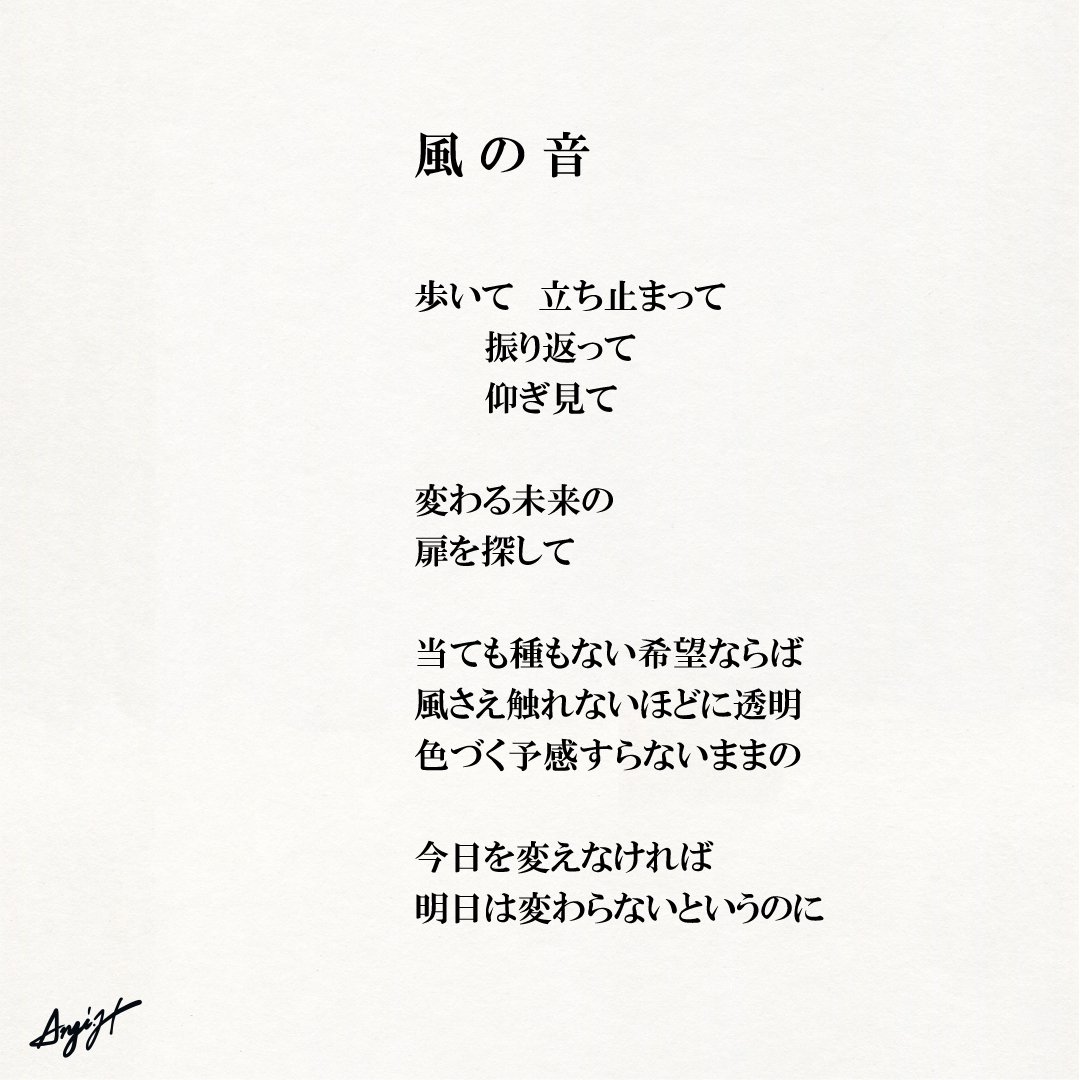 風の音
歩いて　立ち止まって
振り返って
仰ぎ見て
変わる未来の
扉を探して
当ても種もない希望ならば
風さえ触れないほどに透明
色づく予感すらないままの
今日を変えなければ
明日は変わらないというのに
Angi.H